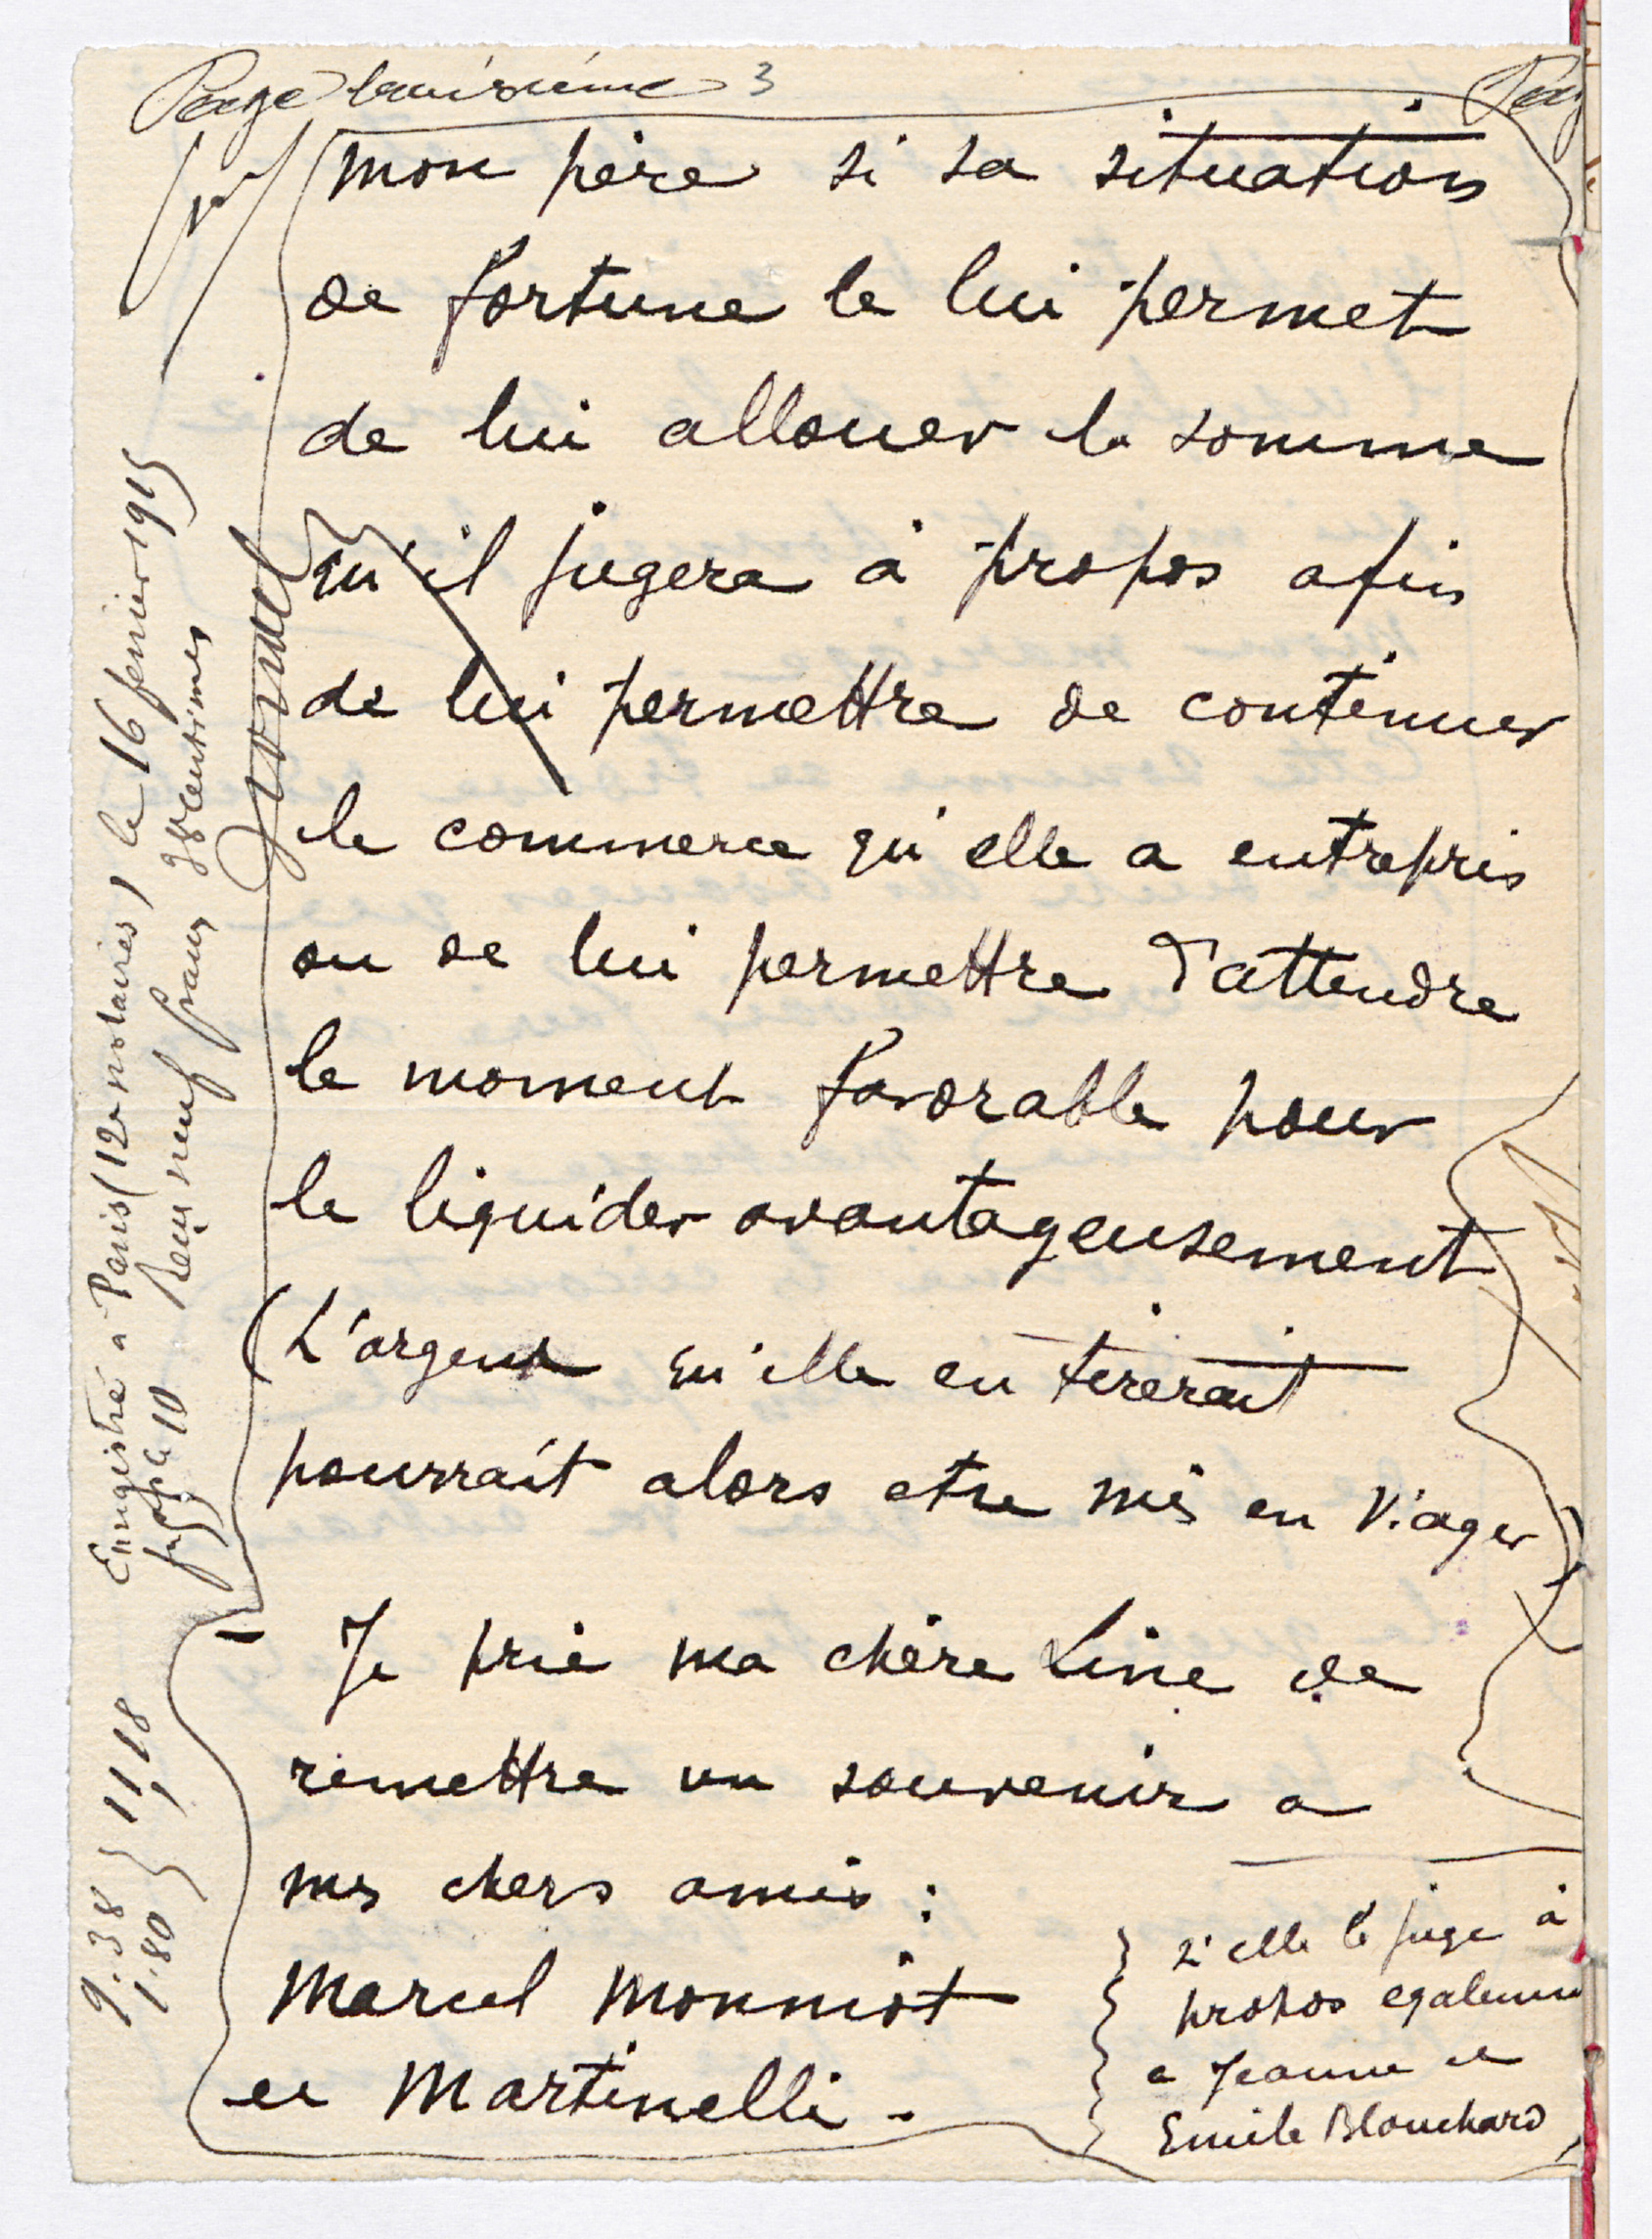 Page troisième 3
mon père si sa situation
de fortune le lui permet
de lui allouer la somme
qu'il jugera à propos afin
de lui permettre de continuer
le commerce qu'elle a entrepris
ou de lui permettre d'attendre
le moment favorable pour
le liquider avantageusement
L'argent qu'elle en tirerait
pourrait alors etre mis en Viager
- Je prie ma chère Line de
remettre un souvenir a
mes chers amis :
Marcel Monniot
et Martinelli -
s'elle le juge à
propos egalement
a Jeanne et
Emile Blouchard
Enregistré à Paris (12e notaires) le 16 fevrier 1915
folio 10 Reçu neuf francs 38 centimes
9.38 } 11,18
1.80